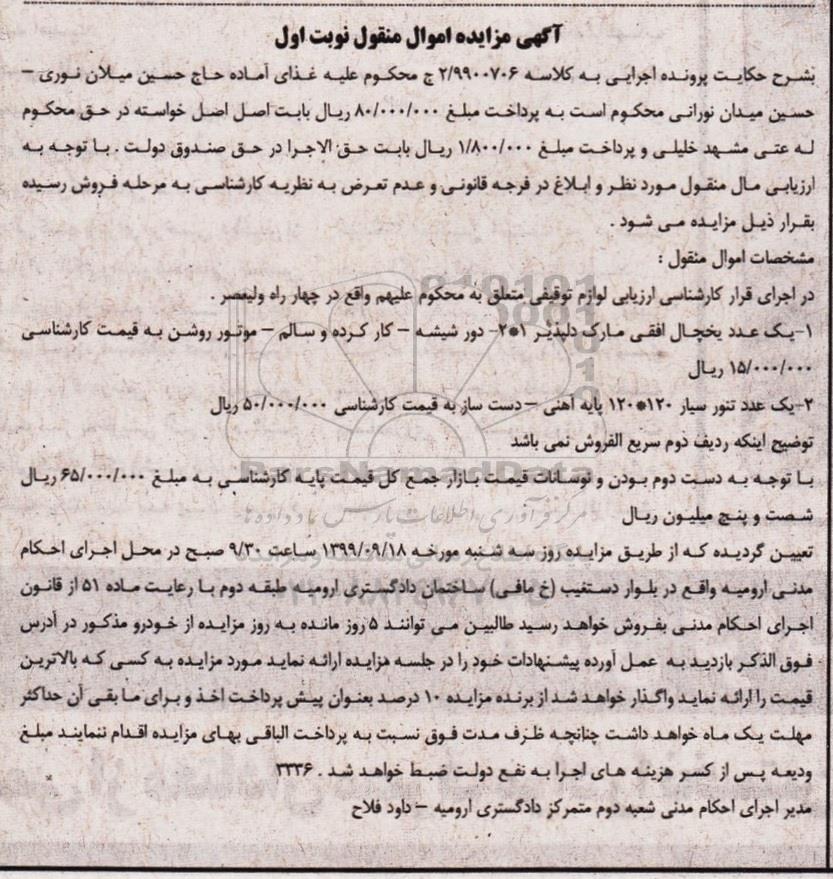 آگهی مزایده اموال منقول نوبت اول
بشرح حکایت پرونده اجرایی به کلاسه ۲/۹۹۰۰۷۰۶ ج محکوم علیه غذای آماده حاج حسین میلان نوری –
حسین میدان نورانی محکوم است به پرداخت مبلغ ۸۰/۰۰۰/۰۰۰ ریال بابت اصل اضل خواسته در حق محکوم
له عتی مشهد خلیلی و پرداخت مبلغ ۱/۸۰۰/۰۰۰ ریال بابت حق الاجرا در حق صندوق دولت . با توجه به
ارزیابی مال منقول مورد نظر و ابلاغ در فرجه قانونی و عدم تعرض به نظریه کارشناسی به مرحله فروش رسیده
بقرار ذیل مزایده می شود .
مشخصات اموال منقول :
در اجرای قرار کارشناسی ارزیابی لوازم توقیفی متعلق به محکوم علیهم واقع در چهار راه ولیعصر .
۱-یک عدد یخچال افقی مارک دلپذیر ۱*۲- دور شیشه – کار کرده و سالم – موتور روشن به قیمت کارشناسی
۱۵/۰۰۰/۰۰۰ ریال
۲-یک عدد تنور سیار ۱۲۰*۱۲۰ پایه آهنی – دست ساز به قیمت کارشناسی ۵۰/۰۰۰/۰۰۰ ریال
توضیح اینکه ردیف دوم سریع الفروش نمی باشد
با توجه به دست دوم بودن و نوسانات قیمت بازار جمع کل قیمت پایه کارشناسی به مبلغ ۶۵/۰۰۰/۰۰۰ ریال
شصت و پنج میلیون ریال
تعیین گردیده که از طریق مزایده روز سه شنبه مورخه ۱۳۹۹/۰۹/۱۸ ساعت ۹/۳۰ صبح در محل اجرای احکام
مدنی ارومیه واقع در بلوار دستغیب (خ مافی) ساختمان دادگستری ارومیه طبقه دوم با رعایت ماده ۵۱ از قانون
اجرای احکام مدنی بفروش خواهد رسید طالبین می توانند ۵ روز مانده به روز مزایده از خودرو مذکور در آدرس
فوق الذکر بازدید به عمل آورده پیشنهادات خود را در جلسه مزایده ارائه نماید مورد مزایده به کسی که بالاترین
قیمت را ارائه نماید واگذار خواهد شد از برنده مزایده ۱۰ درصد بعنوان پیش پرداخت اخذ و برای ما بقی آن حداکثر
مهلت یک ماه خواهد داشت چنانچه ظرف مدت فوق نسبت به پرداخت الباقی بهای مزایده اقدام ننمایند مبلغ
ودیعه پس از کسر هزینه های اجرا به نفع دولت ضبط خواهد شد . ۳۳۳۶
مدیر اجرای احکام مدنی شعبه دوم متمرکز دادگستری ارومیه – داود فلاح
ParsNamadData